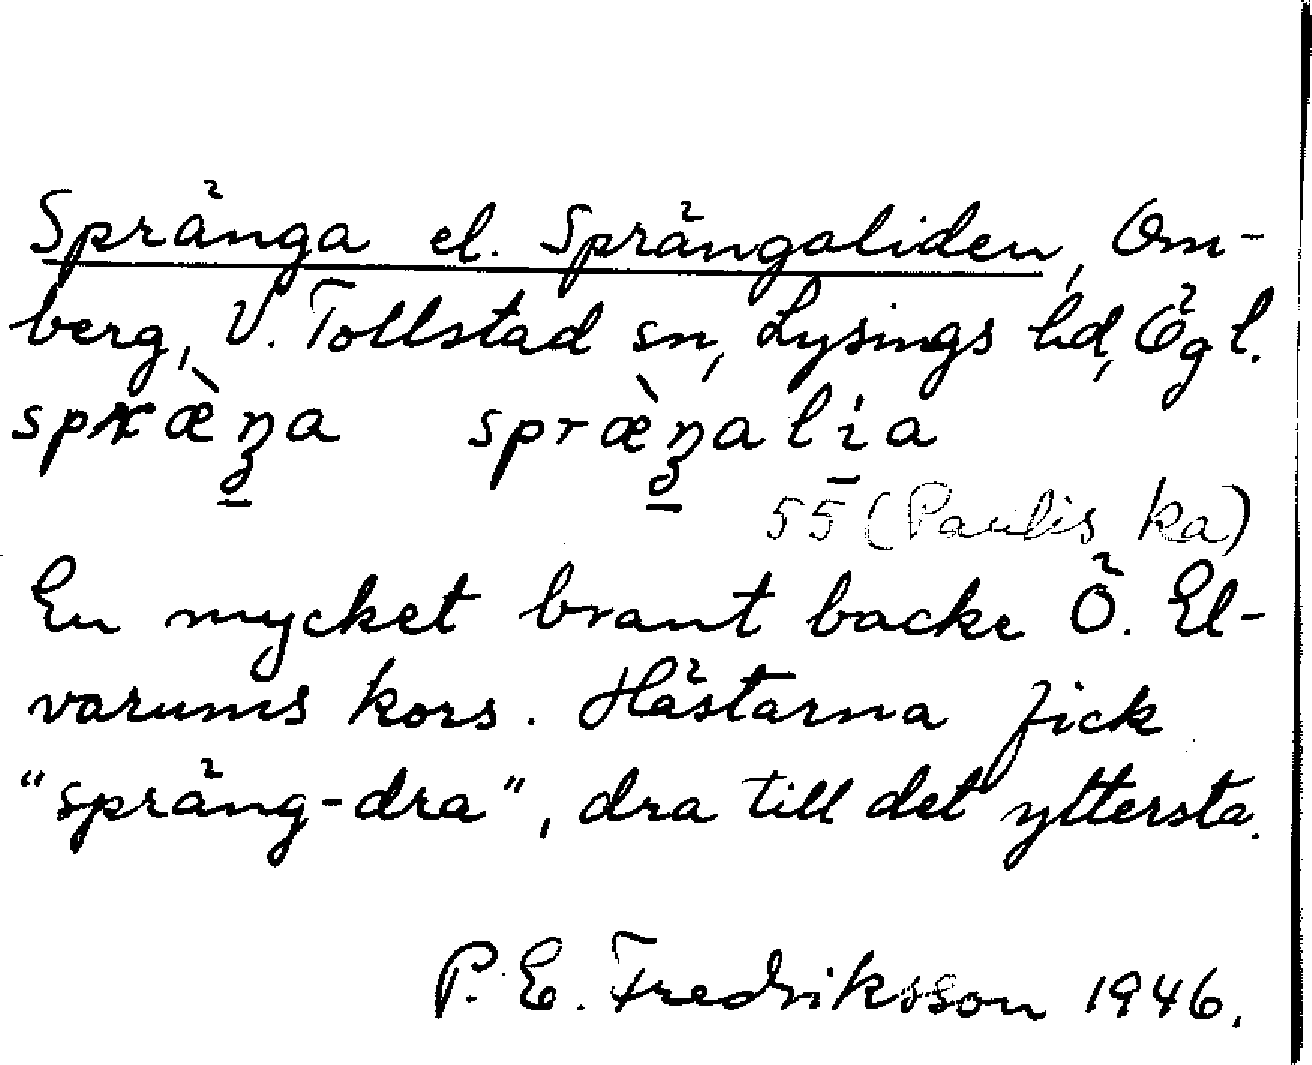 Spränga el. Sprängaliden, Om-
berg, V. Tollstad sn, Lysings hd, Ögl.
spræ̀ŋa spræ̀ŋalia
55 (Paulis ka)
En mycket brant backe Ö. El-
varums kors. Hästarna fick
"spräng-dra", dra till det yttersta.
P. E. Fredriksson 1946.